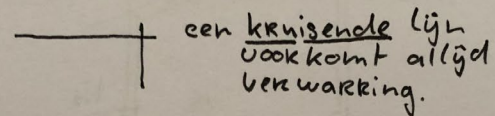 een kruisende lijn
voorkomt altijd
verwarring.